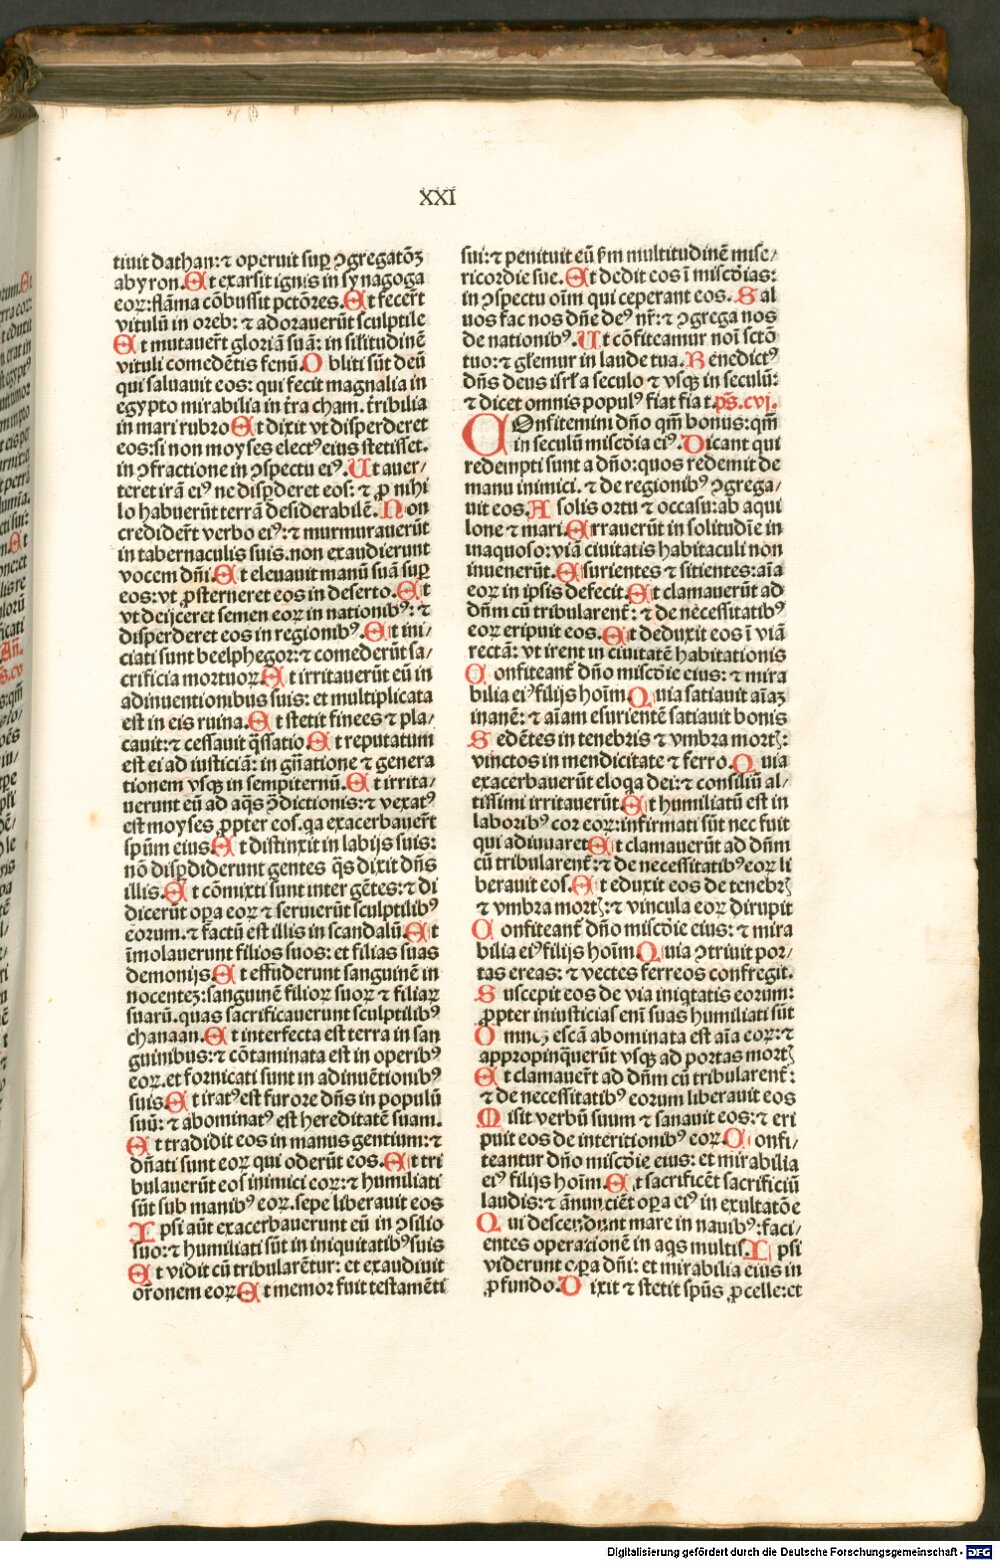 XXI
tiuit dathan: ⁊ operuit suꝑ ꝯgregatōꝫ
abyron. Et exarsit ignis in synagoga
eoꝝ: flāma cōbussit pctōres. Et fecer̄t
vitulū in oreb: ⁊ adorauerūt sculptile
Et mutauer̄t gloriā suā: in silitudinē
vituli comedētis fenū. Obliti sūt deū
qui saluauit eos: qui fecit magnalia in
egypto mirabilia in t̄ra cham. t̄ribilia
in mari rubro Et dixit vt disperderet
eos: si non moyses electꝰ eius stetisset.
in ꝯfractione in ꝯspectu eiꝰ. Ut auer/
teret irā eiꝰ ne disꝑderet eos: ⁊ ꝓ nihi
lo habuerūt terrā desiderabilē. Non
credider̄t verbo eiꝰ: ⁊ murmurauerūt
in tabernaculis suis. non exaudierunt
vocem dn̄i. Et eleuauit manū suā suꝑ
eos: vt ꝓsterneret eos in deserto. Et
vt deijceret semen eoꝝ in nationibꝰ: ⁊
disperderet eos in regionibꝰ. Et ini/
ciati sunt beelphegor: ⁊ comederūt sa/
crificia mortuoꝝ. Et irritauerūt eū in
adinuentionibus suis: et multiplicata
est in eis ruina. Et stetit finees ⁊ pla/
cauit: ⁊ cessauit q̄ssatio. Et reputatum
est ei ad iusticiā: in gn̄atione ⁊ genera
tionem vsqꝫ in sempiternū. Et irrita/
uerunt eū ad aq̄s ꝯ̄dictionis: ⁊ vexatꝰ
est moyses ꝓpter eos. qa exacerbauer̄t
spūm eius. Et distinxit in labijs suis:
nō disꝑdiderunt gentes q̄s dixit dn̄s
illis. Et cōmixti sunt inter gētes: ⁊ di
dicerūt oꝑa eoꝝ ⁊ seruierūt sculptilibꝰ
eorum. ⁊ factū est illis in scandalū. Et
īmolauerunt filios suos: et filias suas
demonijs. Et effuderunt sanguinē in
nocentez: sanguinē filioꝝ suoꝝ ⁊ filiaꝝ
suarū. quas sacrificauerunt sculptilibꝰ
chanaan. Et interfecta est terra in san
guinibus: ⁊ cōtaminata est in operibꝰ
eoꝝ. et fornicati sunt in adinuētionibꝰ
suis. Et iratꝰ est furore dn̄s in populū
suū: ⁊ abominatꝰ est hereditatē suam.
Et tradidit eos in manus gentium: ⁊
dn̄ati sunt eoꝝ qui oderūt eos. Et tri
bulauerūt eos inimici eoꝝ: ⁊ humiliati
sūt sub manibꝰ eoꝝ. sepe liberauit eos
Ipsi aūt exacerbauerunt eū in ꝯsilio
suo: ⁊ humiliati sūt in iniquitatibꝰ suis
Et vidit cū tribularētur: et exaudiuit
or̄onem eoꝝ. Et memor fuit testamēti
sui: ⁊ penituit eū ẜm multitudinē mise/
ricordie sue. Et dedit eos ī misc̄dias:
in ꝯspectu oīm qui ceperant eos. Sal
uos fac nos dn̄e deꝰ nr̄: ⁊ ꝯgrega nos
de nationibꝰ. Ut cōfiteamur noī sctō
tuo: ⁊ gl̄emur in laude tua. Benedictꝰ
dn̄s deus isrl̄ a seculo ⁊ vsqꝫ in seculū:
⁊ dicet omnis populꝰ fiat fiat. ps̄. cvj.
COnfitemini dn̄o qm̄ bonus: qm̄
in seculū misc̄dia eiꝰ. Dicant qui
redempti sunt a dn̄o: quos redemit de
manu inimici. ⁊ de regionibꝰ ꝯgrega/
uit eos. A solis ortu ⁊ occasu: ab aqui
lone ⁊ mari. Errauerūt in solitudīe in
inaquoso: viā ciuitatis habitaculi non
inuenerūt. Esurientes ⁊ sitientes: aīa
eoꝝ in ipsis defecit. Et clamauerūt ad
dn̄m cū tribularent̄: ⁊ de necessitatibꝰ
eoꝝ eripuit eos. Et deduxit eos ī viā
rectā: vt irent in ciuitatē habitationis
Confiteant̄ dn̄o misc̄die eius: ⁊ mira
bilia eiꝰ filijs hoīm. Quia satiauit aīaꝫ
inanē: ⁊ aīam esurientē satiauit bonis
Sedētes in tenebris ⁊ vmbra mortꝭ:
vinctos in mendicitate ⁊ ferro. Quia
exacerbauerūt eloqa dei: ⁊ consiliū al/
tissimi irritauerūt. Et humiliatū est in
laboribꝰ cor eoꝝ: infirmati sūt nec fuit
qui adiuuaret Et clamauerūt ad dn̄m
cū tribularent̄: ⁊ de necessitatibꝰ eoꝝ li
berauit eos. Et eduxit eos de tenebrꝭ
⁊ vmbra mortꝭ: ⁊ vincula eoꝝ dirupit
Confiteant̄ dn̄o misc̄die eius: ⁊ mira
bilia eiꝰ filijs hoīm. Quia ꝯtriuit por/
tas ereas: ⁊ vectes ferreos confregit.
Suscepit eos de via iniqtatis eorum:
ꝓpter iniusticias enī suas humiliati sūt
Omnē escā abominata est aīa eoꝝ: ⁊
appropinq̄uerūt vsqꝫ ad portas mortꝭ
Et clamauer̄t ad dn̄m cū tribularent̄:
⁊ de necessitatibꝰ eorum liberauit eos
Misit verbū suum ⁊ sanauit eos: ⁊ eri
puit eos de interitionibꝰ eoꝝ. Confi/
teantur dn̄o misc̄die eius: et mirabilia
eiꝰ filijs hoīm. Et sacrificēt sacrificiū
laudis: ⁊ ānunciēt oꝑa eiꝰ in exultatōe
Qui descendunt mare in nauibꝰ: faci/
entes operationē in aqs multis. Ipsi
viderunt oꝑa dn̄i: et mirabilia eius in
ꝓfundo. Dixit ⁊ stetit spūs ꝓcelle: et
Digitalisierung gefördert durch die Deutsche Forschungsgemeinschaft - DFG